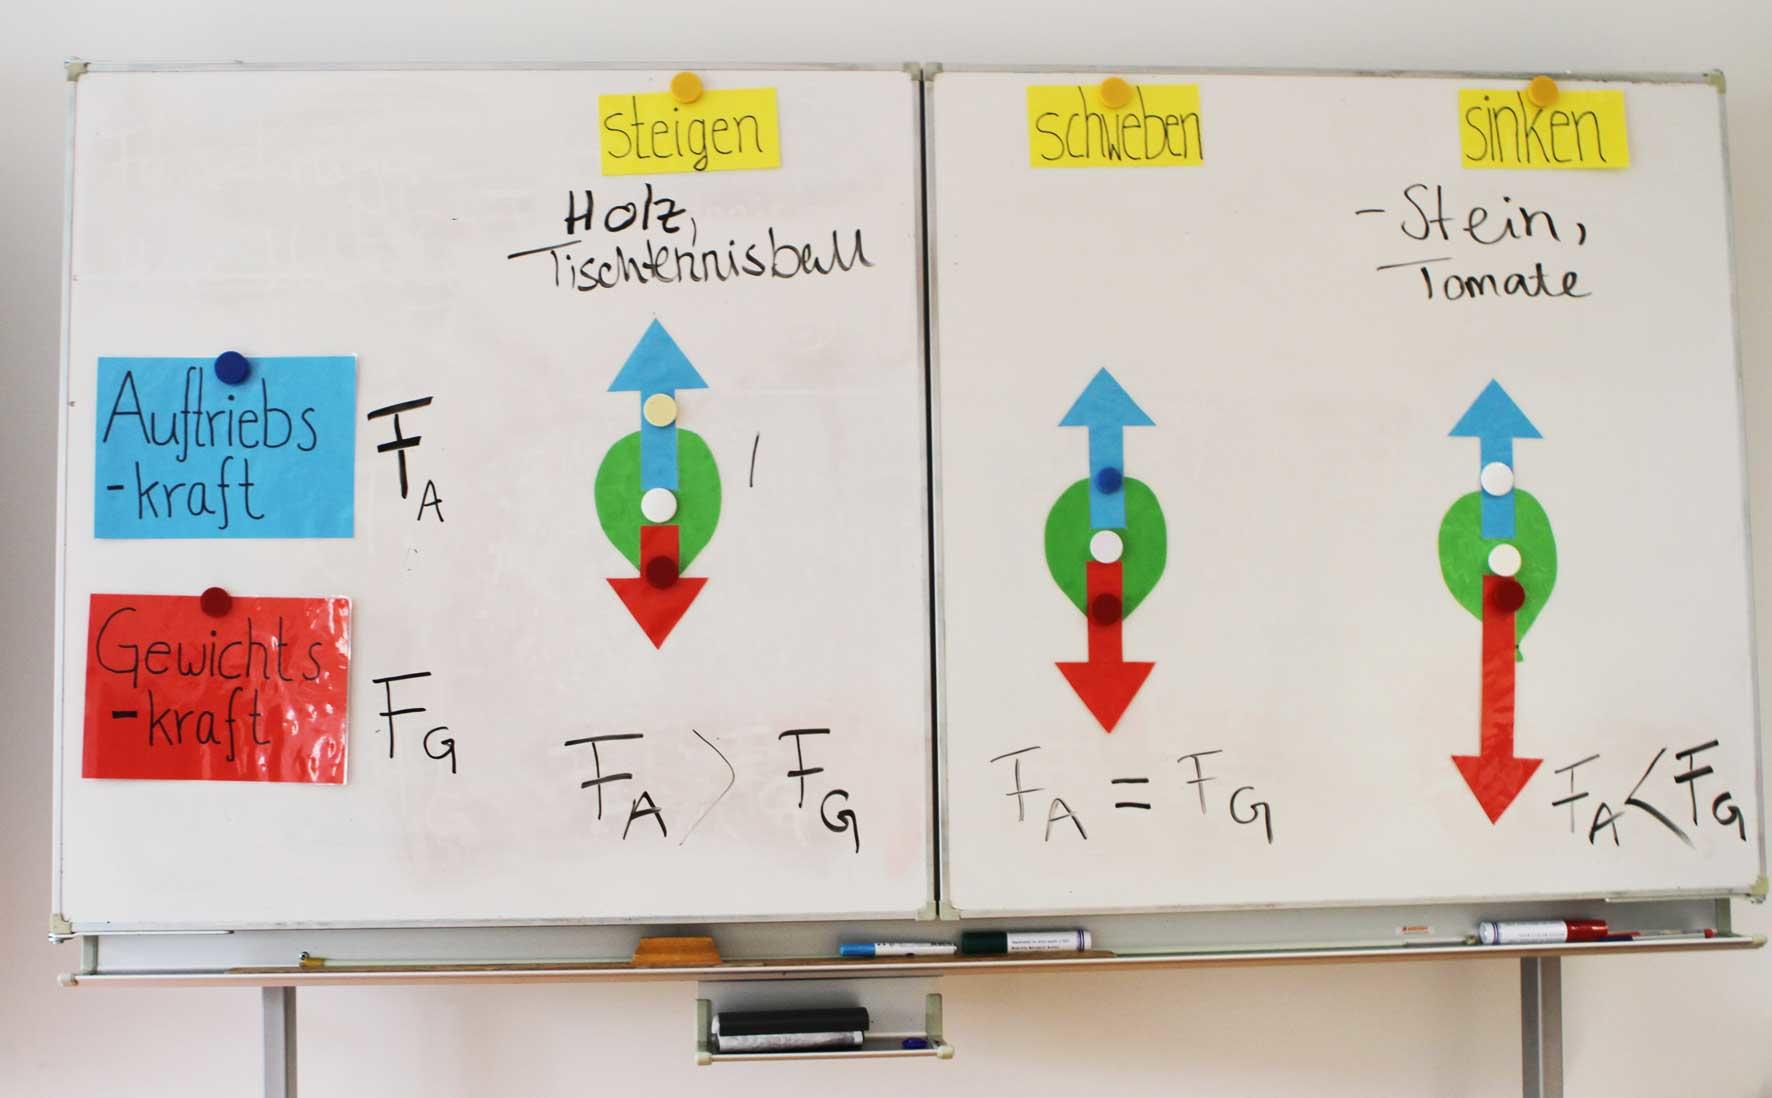 steigen
schweben
sinken
Holz,
Tischtennisball
- Stein,
Tomate
Auftriebs
-kraft
F_A
Gewichts
-kraft
F_G
F_A > F_G
F_A = F_G
F_A < F_G